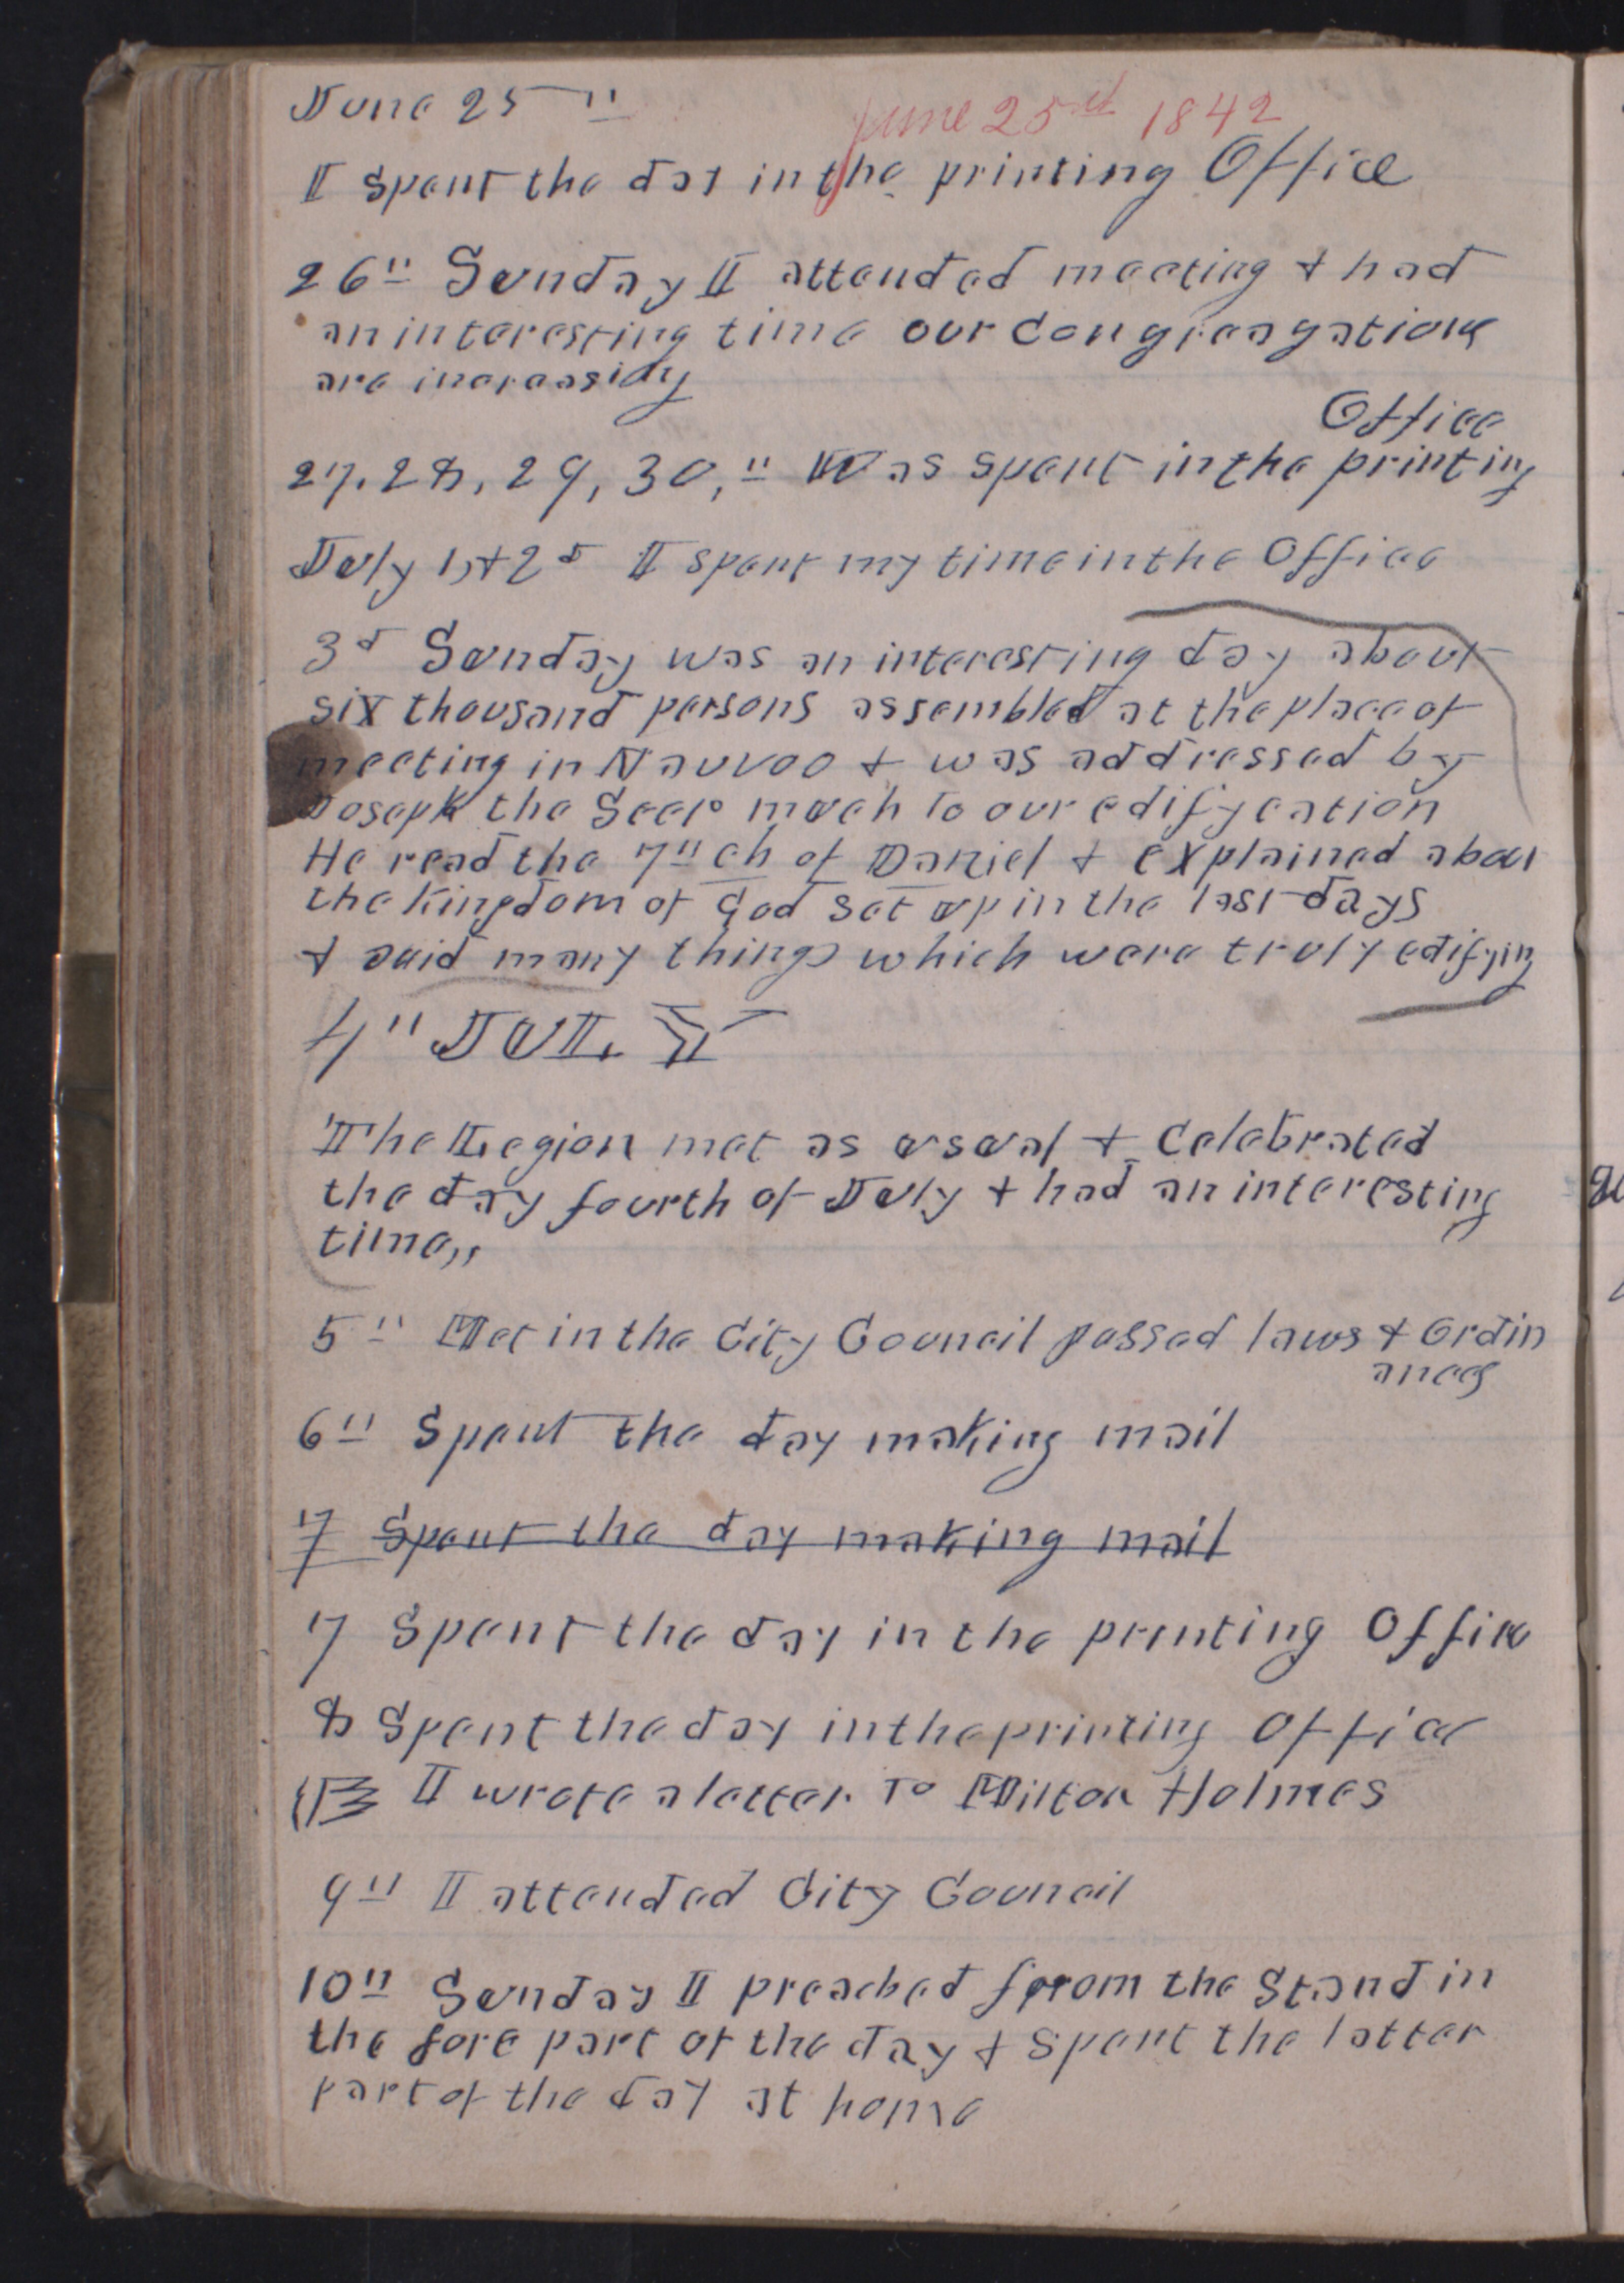 June 25"
June 25th 1842
I spent the day in the printing Office
26" Sunday I attended meeting & had
an interesting time our congreagations
are increasidg
Office
27, 28, 29, 30," Was spent in the printing
July 1, & 2d I spent my time in the Office
3d Sunday was an interesting day about
six thousand persons assembled at the place of
meeting in Nauvoo & was addressed by
Joseph the Seer much to our edifycation
He read the 7" ch of Daniel & explained about
the kingdom of God set up in the last days
& said many things which were truly edifying
4" JULY
The Legion met as usual & Celebrated
the day fourth of July & had an interesting
time,,
5" Met in the City Council passed laws & Ordin
ances
6" Spent the day making mail
7 Spent the day making mail
7 Spent the day in the printing Office
8 Spent the day in the printing Office
I wrote a letter To Milton Holmes
9" I attended City Council
10" Sunday I preached from the Stand in
the fore part of the day & Spent the latter
part of the day at home